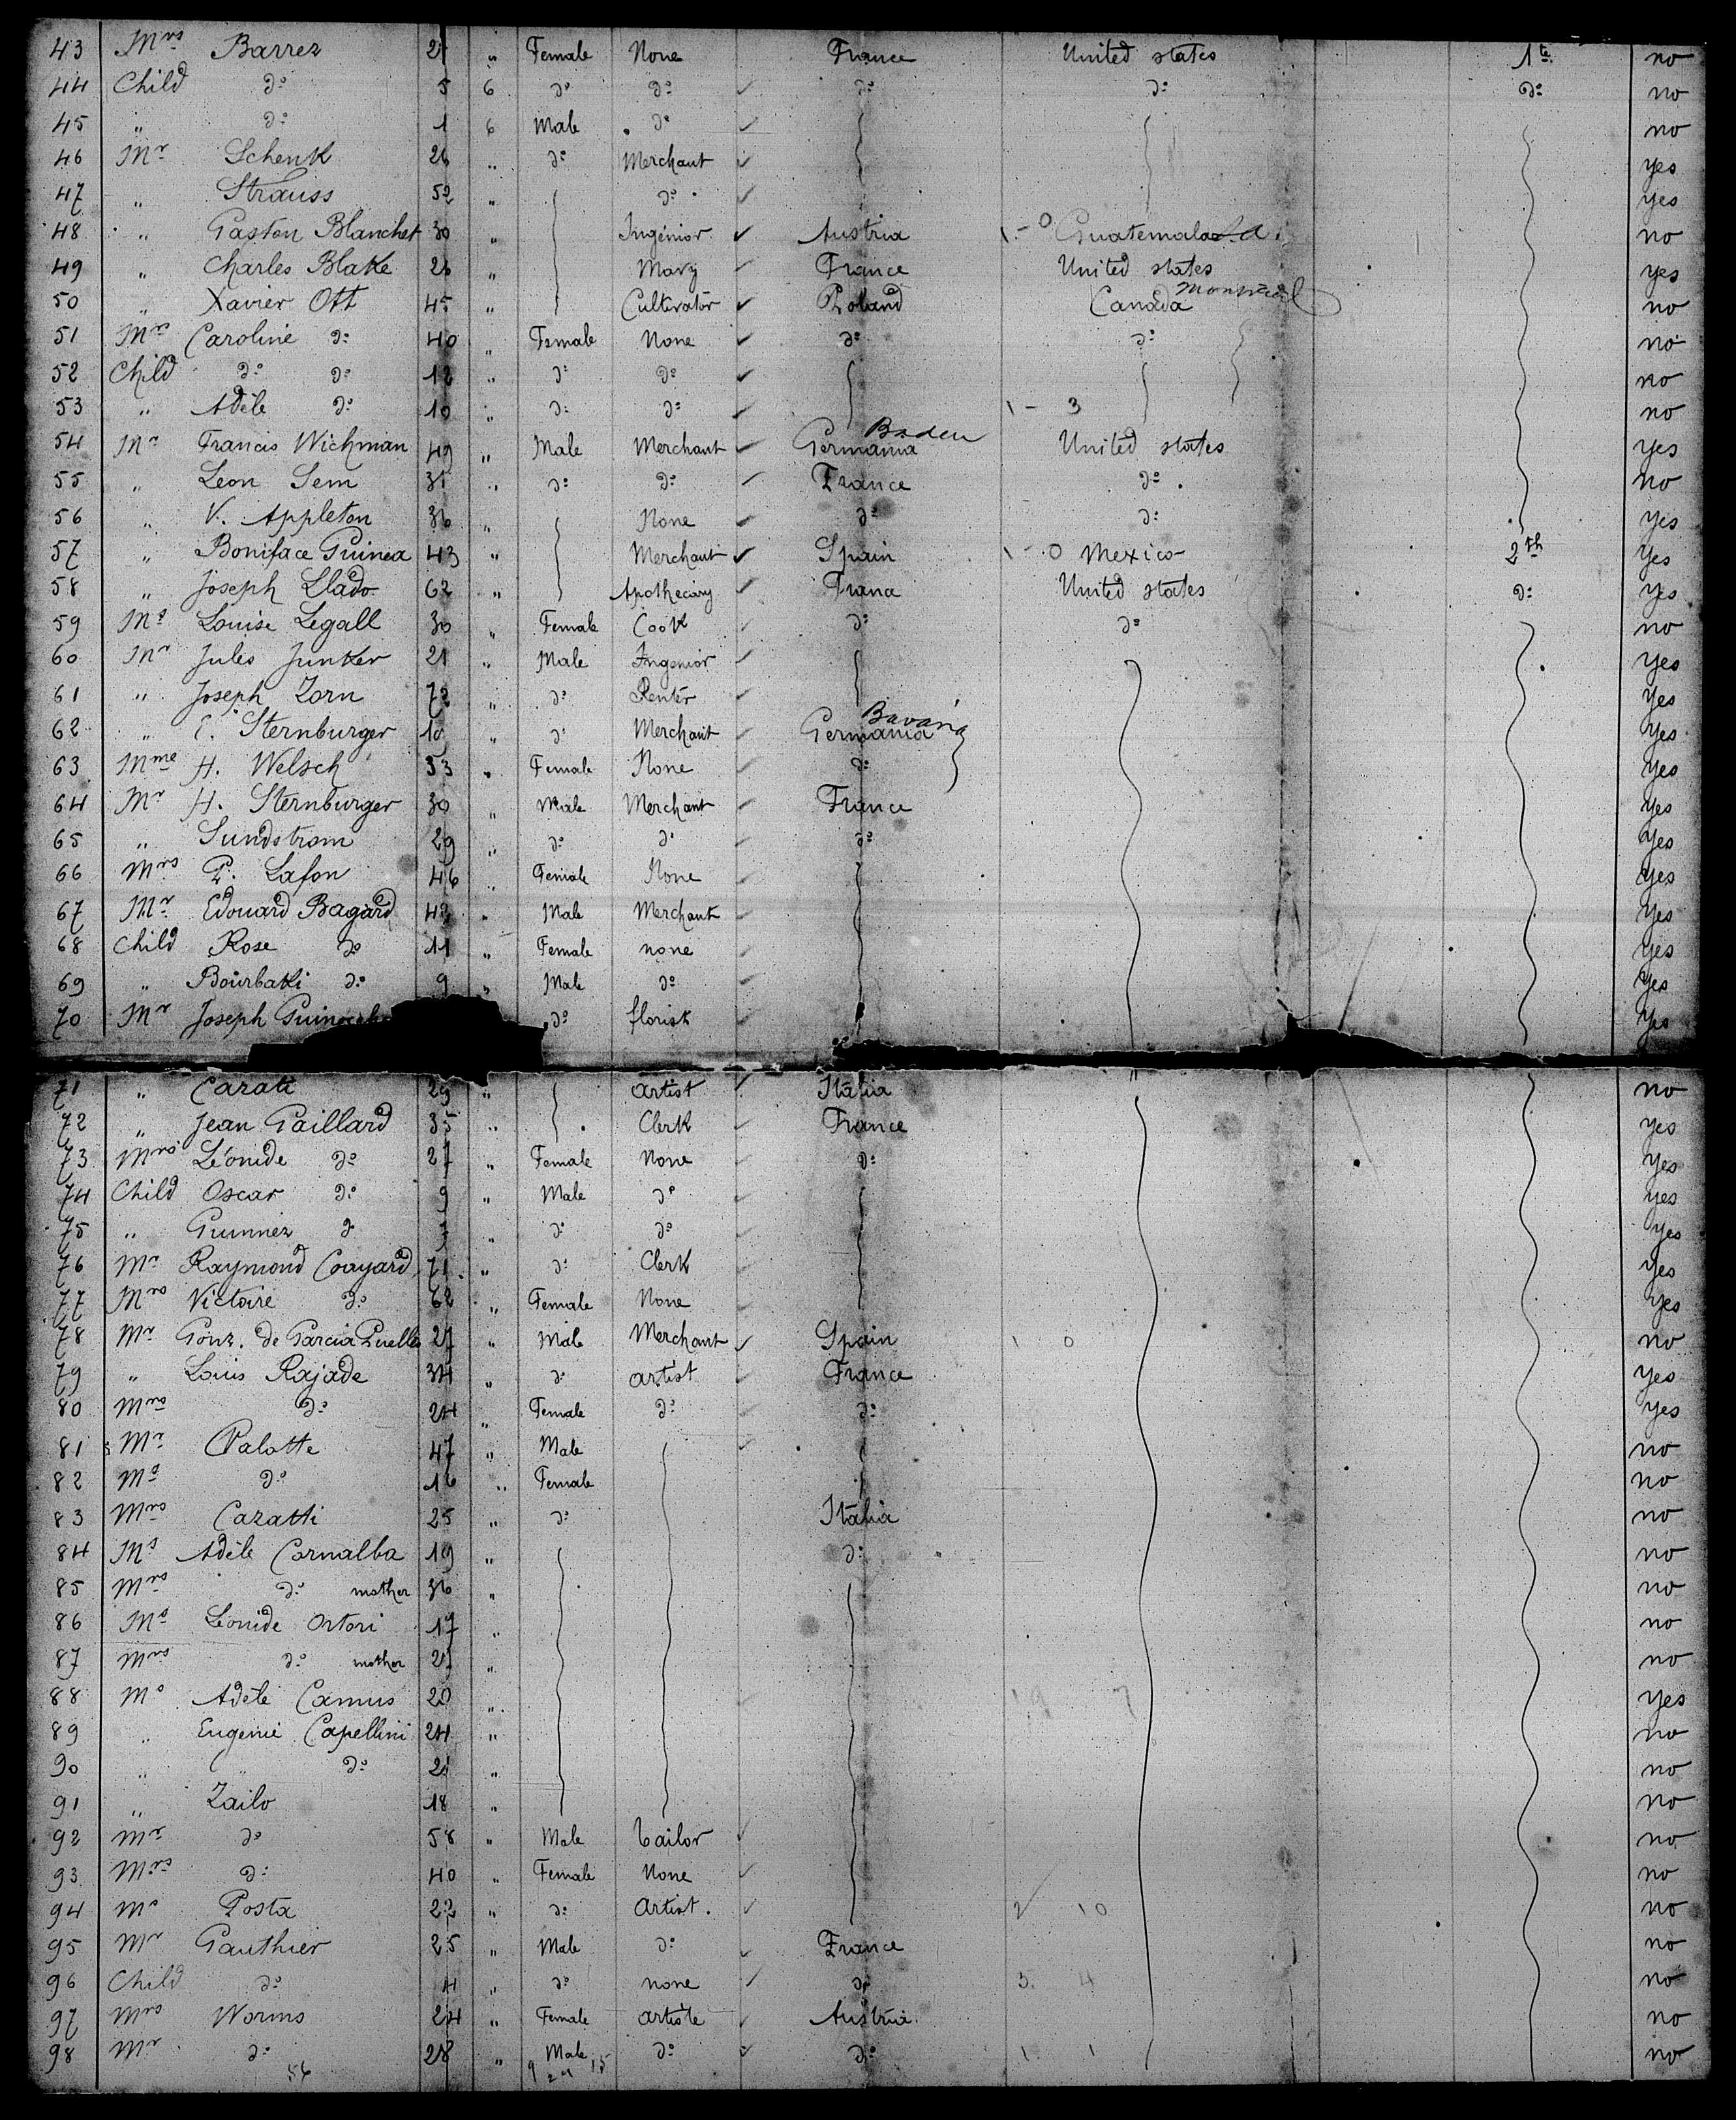 43 Mrs Barrez 21 " Female None France United states 1te no
44 Child do 5 6 do do do do do no
45 " do 1 6 Male do no
46 Mr Schenk 26 " do Merchant yes
47 " Strauss 52 " do yes
48 " Gaston Blanchet 30 " Ingénior Austria 1 - 0 Guatemala no
49 " Charles Blake 26 " France United states yes
50 " Xavier Ott 45 " Cultivator Poland Canada Montreal no
51 Mrs Caroline do 40 " Female None do do no
52 Child do do 12 " do do no
53 " Adèle do 10 " do do 1 - 3 no
54 Mr Francis Wichman 49 " Male Merchant Germania Baden United states yes
55 " Leon Sem 31 " do do France do no
56 " V. Appleton 36 " None do do yes
57 " Boniface Guinea 43 " Merchant Spain 1 - 0 Mexico 2th yes
58 " Joseph Llado 62 " Apothecary France United states do yes
59 Ms Louise Legall 30 " Female Cook do do no
60 Mr Jules Junker 21 " Male Ingenior yes
61 " Joseph Zorn 72 " do Renter yes
62 " E. Sternburger 18 " do Merchant Germania Bavaria yes
63 Mme H. Welsch 53 " Female None do yes
64 Mr H. Sternburger 30 " Male Merchant France yes
65 " Sundstrom 29 " do do do yes
66 Mrs P. Lafon 46 " Female None yes
67 Mr Edouard Bagard 42 " Male Merchant yes
68 Child Rose do 11 " Female none yes
69 " Bourbaki do 9 " Male do yes
70 Mr Joseph do florist yes
71 " Carati 29 " artist Italia no
72 " Jean Gaillard 35 " Clerk France yes
73 Mrs Léonide do 27 " Female None do yes
74 Child Oscar do 9 " Male do yes
75 " Gunnez do " do do yes
76 Mr Raymond Couyard 71 " do Clerk yes
77 Mrs Victoire do 62 " Female None yes
78 Mr Gonz. de Garcia Puelles 27 " Male Merchant Spain 1 0 no
79 " Louis Rajade 34 " do artist France yes
80 Mrs do 24 " Female do do yes
81 Mr Palotte 47 " Male no
82 Ms do 16 " Female no
83 Mrs Caratti 25 " do Italia no
84 Ms Adèle Cornalba 19 " do no
85 Mrs do mother 36 " no
86 Ms Léonide Ortori 17 " no
87 Mrs do mother " no
88 Ms Adèle Camus 20 " 19 7 yes
89 " Eugenie Capellini 24 " no
90 " " do 21 " no
91 " Zailo 18 " no
92 Mr do 58 " Male tailor no
93 Mrs do 40 " Female None no
94 Ms Posta 22 " do Artist. 2 10 no
95 Mr Gauthier 25 " Male do France no
96 Child do 4 " do none do 3. 4 no
97 Mrs Worms 24 " Female artiste Austria. no
98 Mr do 28 " Male do do 1 1 no
56